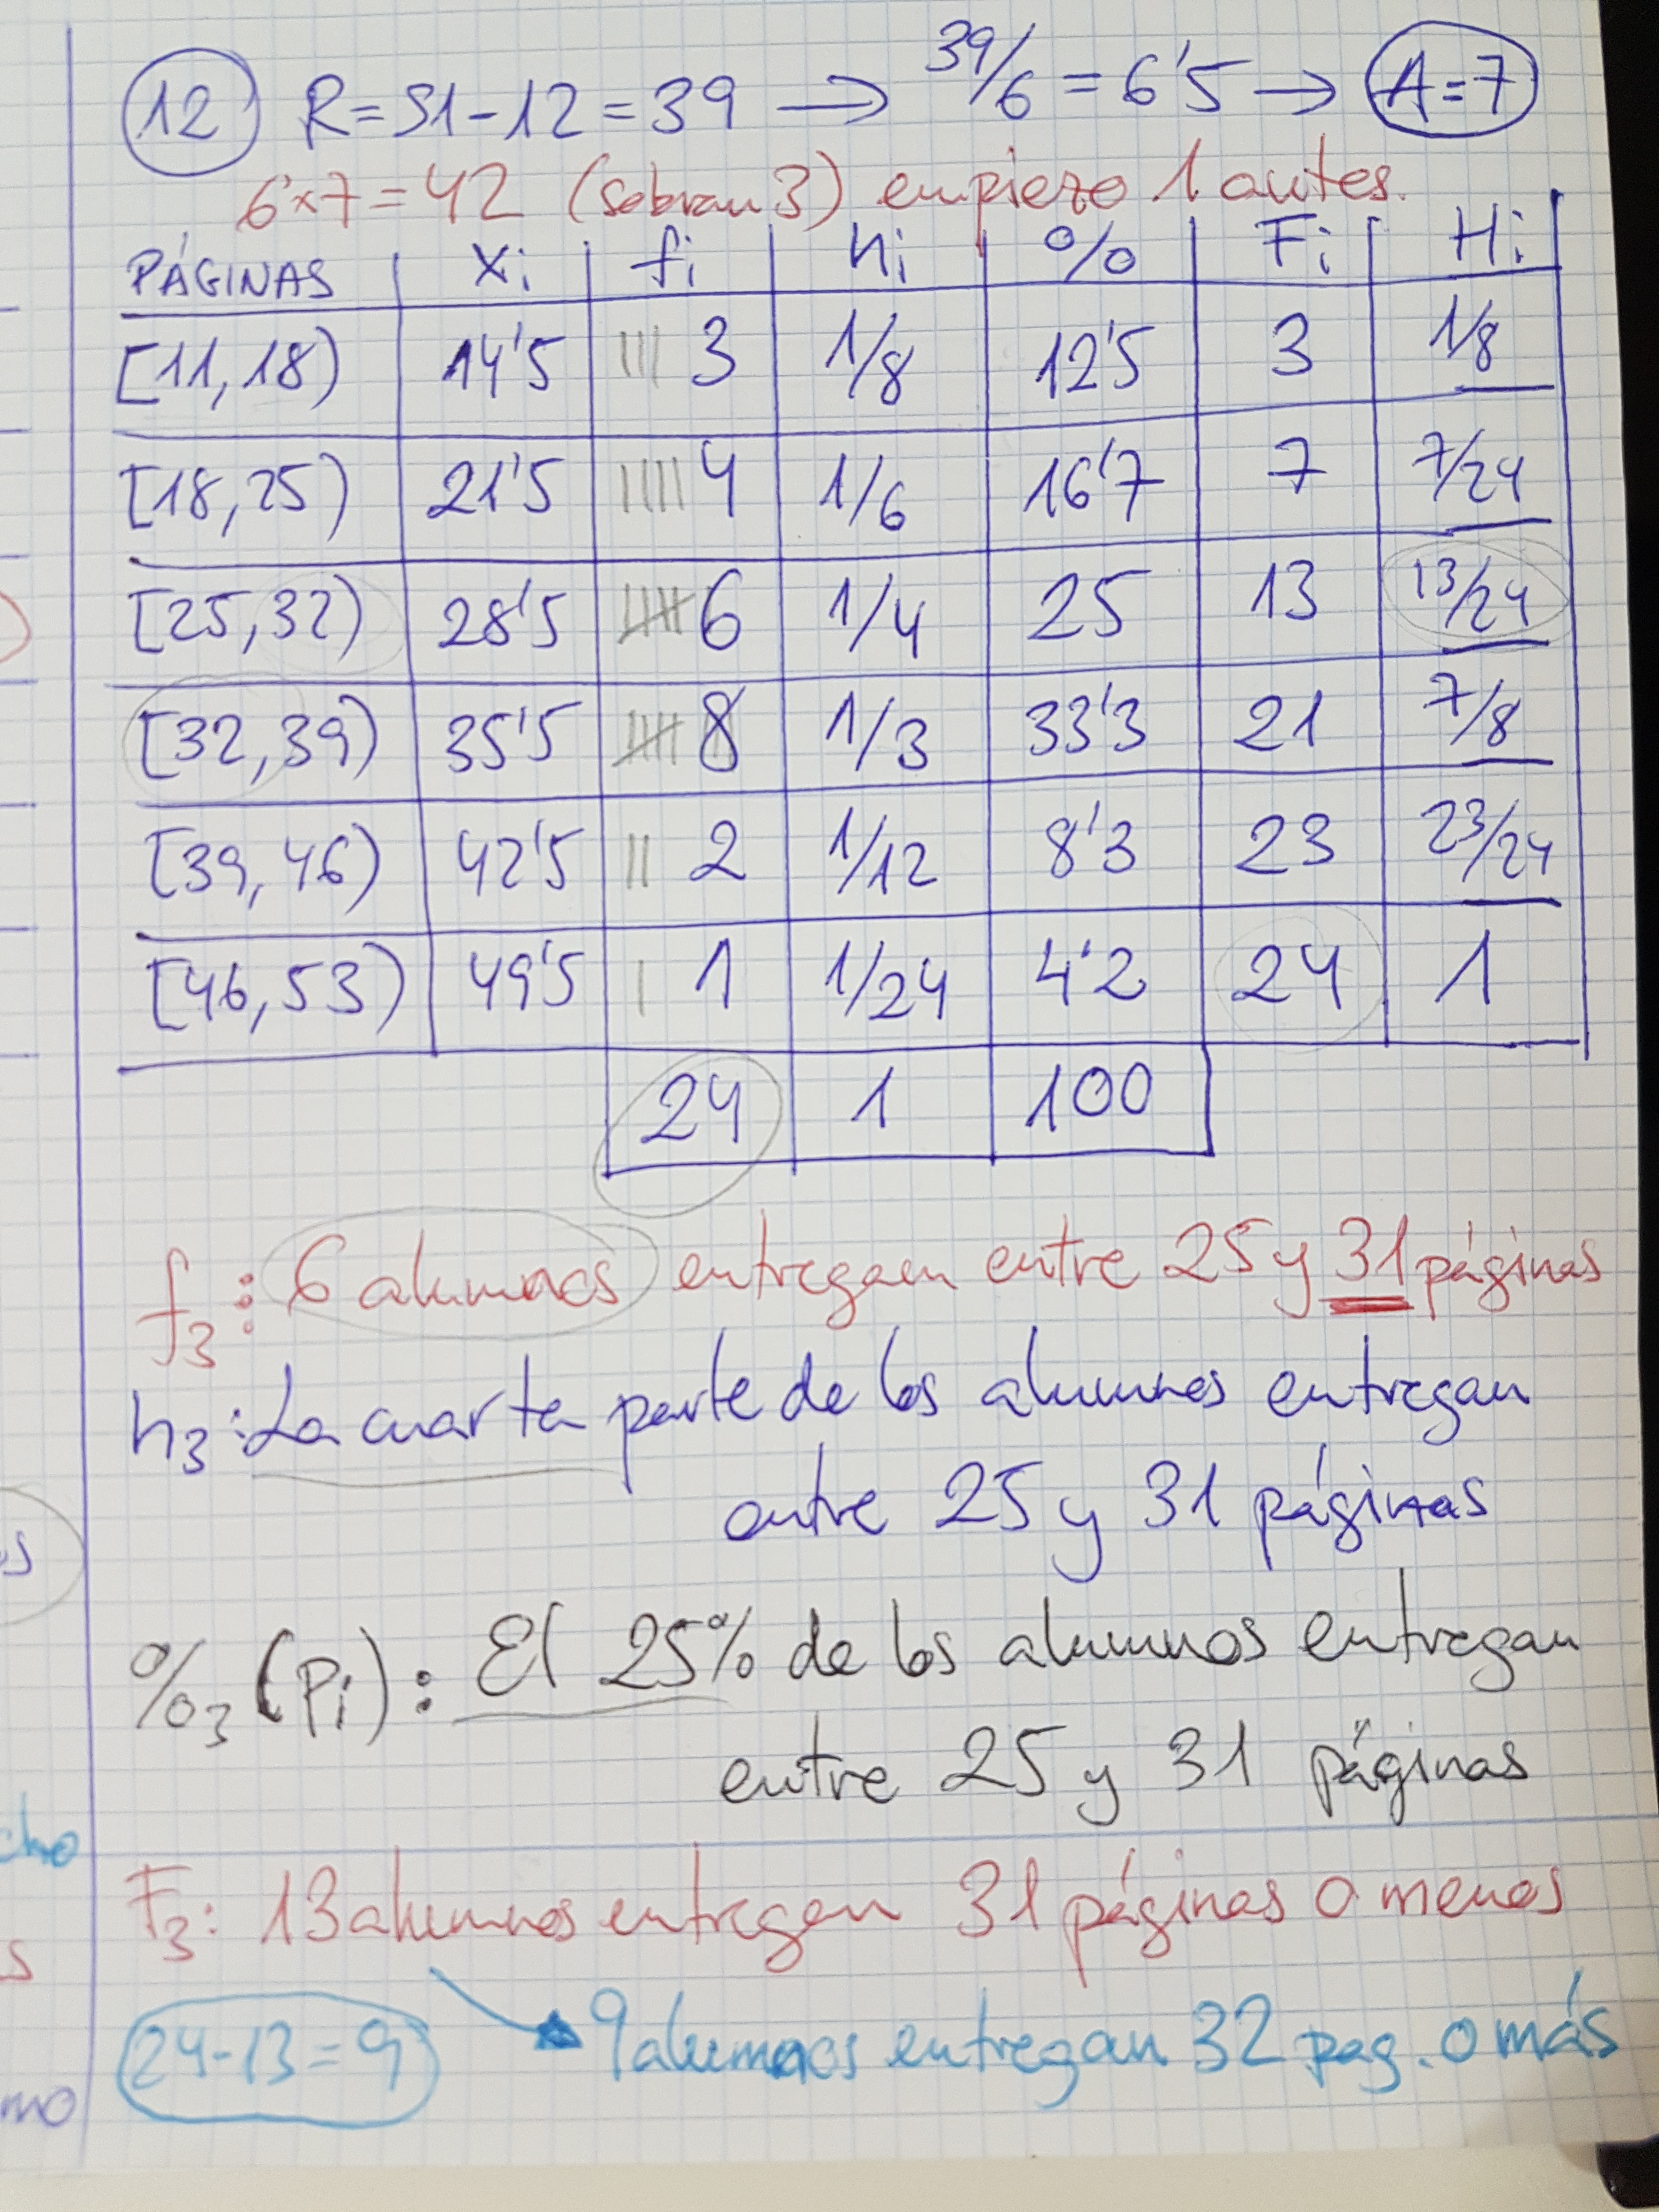 12 R=51-12=39 → 39/6 = 6'5 → A=7
6x7=42 (sobran 3) empiezo 1 antes.
PÁGINAS xi fi hi % Fi Hi
[11,18) 14'5 3 1/8 12'5 3 1/8
[18,25) 21'5 4 1/6 16'7 7 7/24
[25,32) 28'5 6 1/4 25 13 13/24
[32,39) 35'5 8 1/3 33'3 21 7/8
[39,46) 42'5 2 1/12 8'3 23 23/24
[46,53) 49'5 1 1/24 4'2 24 1
24 1 100
f3: 6 alumnos entregan entre 25 y 31 páginas
h3: La cuarta parte de los alumnos entregan
entre 25 y 31 páginas
%3 (Pi): El 25% de los alumnos entregan
entre 25 y 31 páginas
F3: 13 alumnos entregan 31 páginas o menos
24-13=9 → 9 alumnos entregan 32 pag. o más